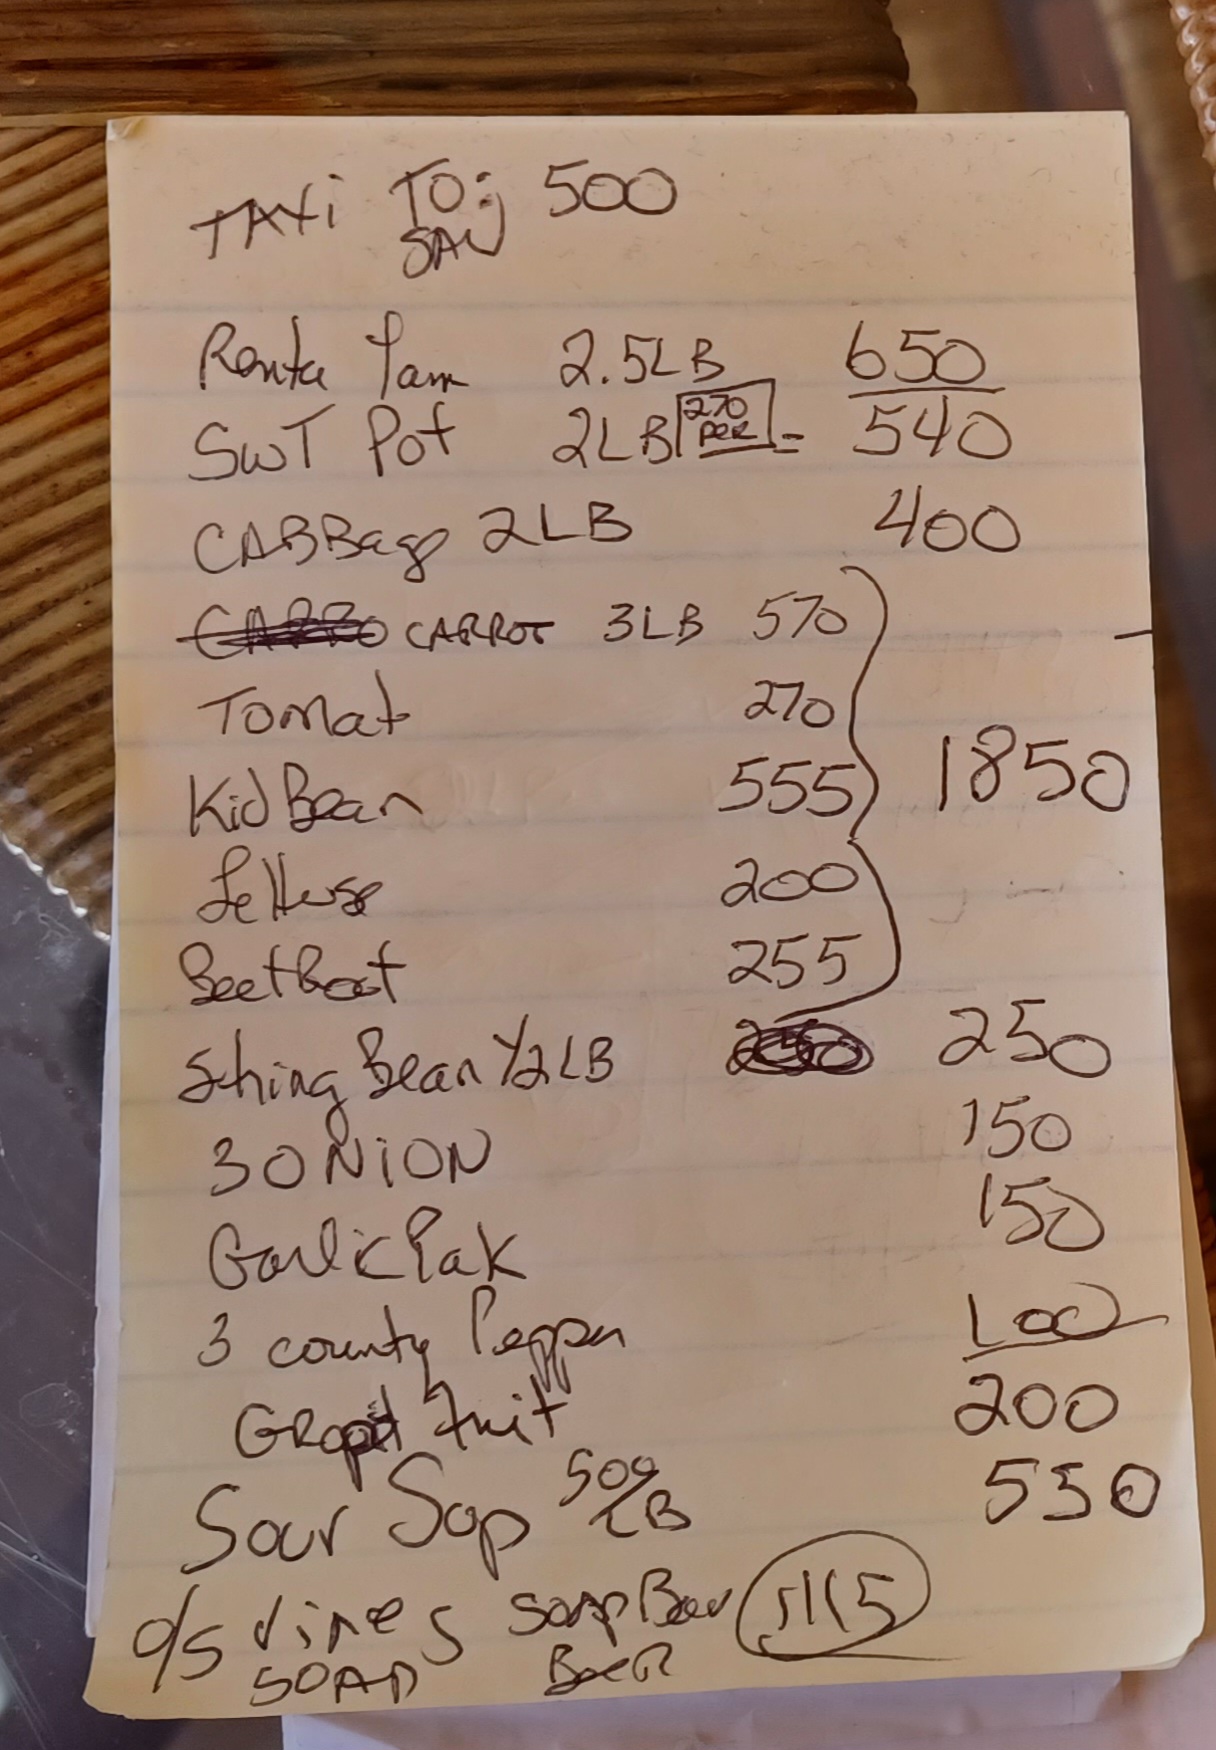 TAXi TO: 500
SAV
Renta Yam 2.5LB 650
SWT Pot 2LB 270 PER - 540
CABBage 2LB 400
CARRO CARROT 3LB 570
Tomat 270
Kid Bean 555 1850
Lettuse 200
BeetRoot 255
String Bean 1/2 LB 250
3 ONiON 150
Garlic Pak 150
3 county Pepper 100
Fruit 200
Sour Sop 500/LB 550
d/s vines soap Bar 5115
SOAP